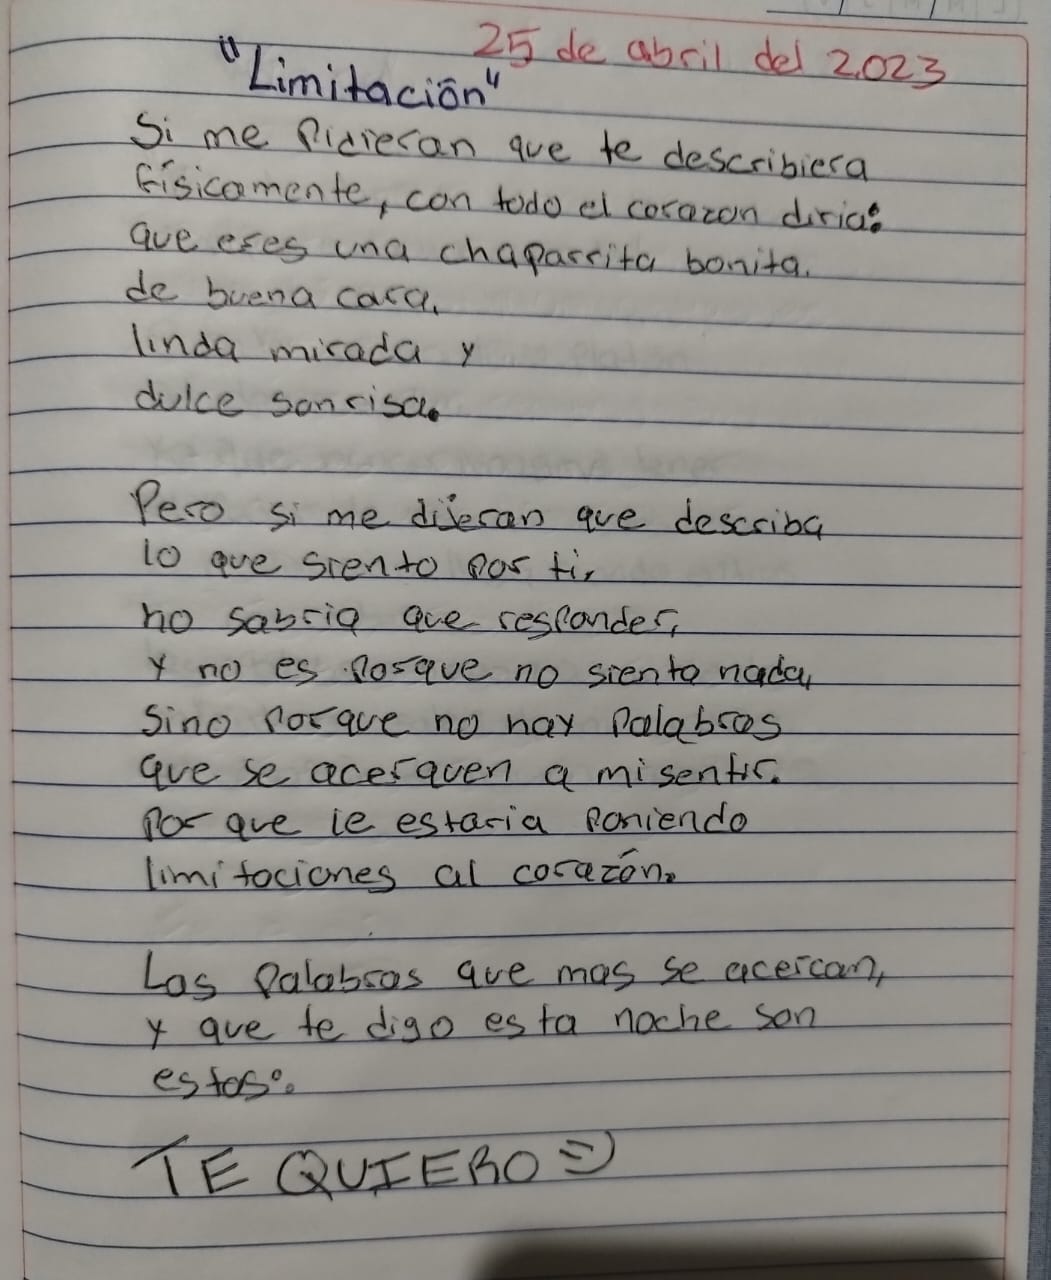 25 de abril del 2023
"Limitación"
Si me Pidieran que te describiera
físicamente, con todo el corazon diria:
que eres una chaparrita bonita,
de buena cara,
linda mirada y
dulce sonrisa.
Pero si me dijeran que describa
lo que siento por ti,
no sabria que responder,
y no es porque no sienta nada,
Sino porque no hay Palabras
que se acerquen a mi sentir.
Por que le estaria Poniendo
limitaciones al corazón.
Las Palabras que mas se acercan,
y que te digo esta noche son
estas:
TE QUIERO =)